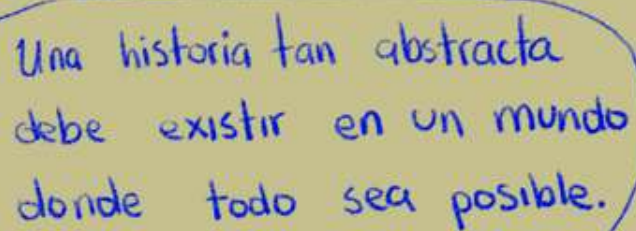 Una historia tan abstracta
debe existir en un mundo
donde todo sea posible.